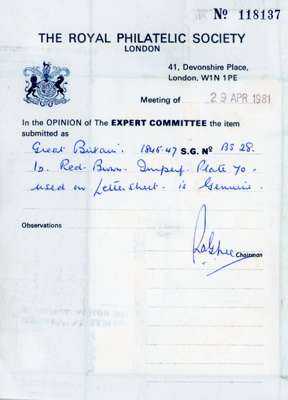 Nº 118137
THE ROYAL PHILATELIC SOCIETY
LONDON
41, Devonshire Place,
London, W1N 1PE
Meeting of 29 APR 1981
In the OPINION of The EXPERT COMMITTEE the item
submitted as
Great Britain. 1846-47 S.G. Nº BS 28.
1d. Red-Brown. Imperf. Plate 70.
used on Lettersheet. is Genuine.
Observations
Chairman